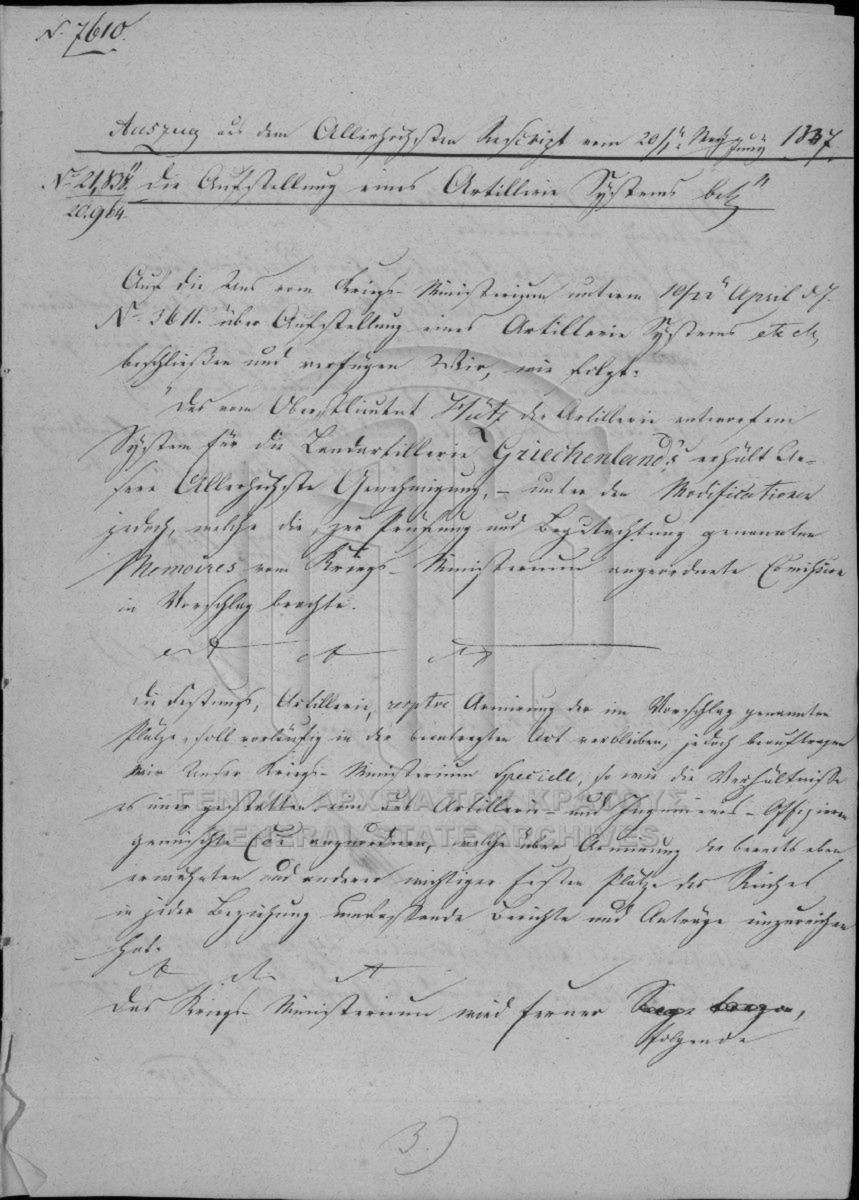 N. 7610.
Auszug aus dem Allerhöchsten Rescript vom 20/1 May/Juny 1837.
N. 21,838. die Aufstellung eines Artillerie Systems betr
20,964.
Auf die Uns vom Kriegs-Ministerium unterm 10/22 April d. J.
N. 3611. über Aufstellung eines Artillerie Systems etc etc
beschließen und verfügen Wir, wie folgt:
"Das vom Oberstlieutnt Hütz der Artillerie entworfene
System für die Landartillerie Griechenland's erhält Un-
sere Allerhöchste Genehmigung, – unter den Modificationen
jedoch, welche die zur Prüfung und Begutachtung genannten
Memoires vom Kriegs-Ministerium angeordnete Comission
in Vorschlag brachte.
Die Festungs-Artillerie, respve Armirung der im Vorschlag genannten
Plätze soll vorläufig in der beantragten Art verbleiben, jedoch beauftragen
Wir Unser Kriegs-Ministerium speciell, so wie die Verhältnisse
es immer gestatten eine aus Artillerie- und Ingenieurs-Offizieren
gemischte Con anzuordnen, welche über Armirung der bereits oben
erwähnten und anderer wichtiger festen Plätze des Reiches
in jeder Beziehung umfassende Berichte und Anträge einzureichen
hat.
Das Kriegs-Ministerium wird ferner
folgende
3.)
ΓΕΝΙΚΑ ΑΡΧΕΙΑ ΤΟΥ ΚΡΑΤΟΥΣ
GENERAL STATE ARCHIVES